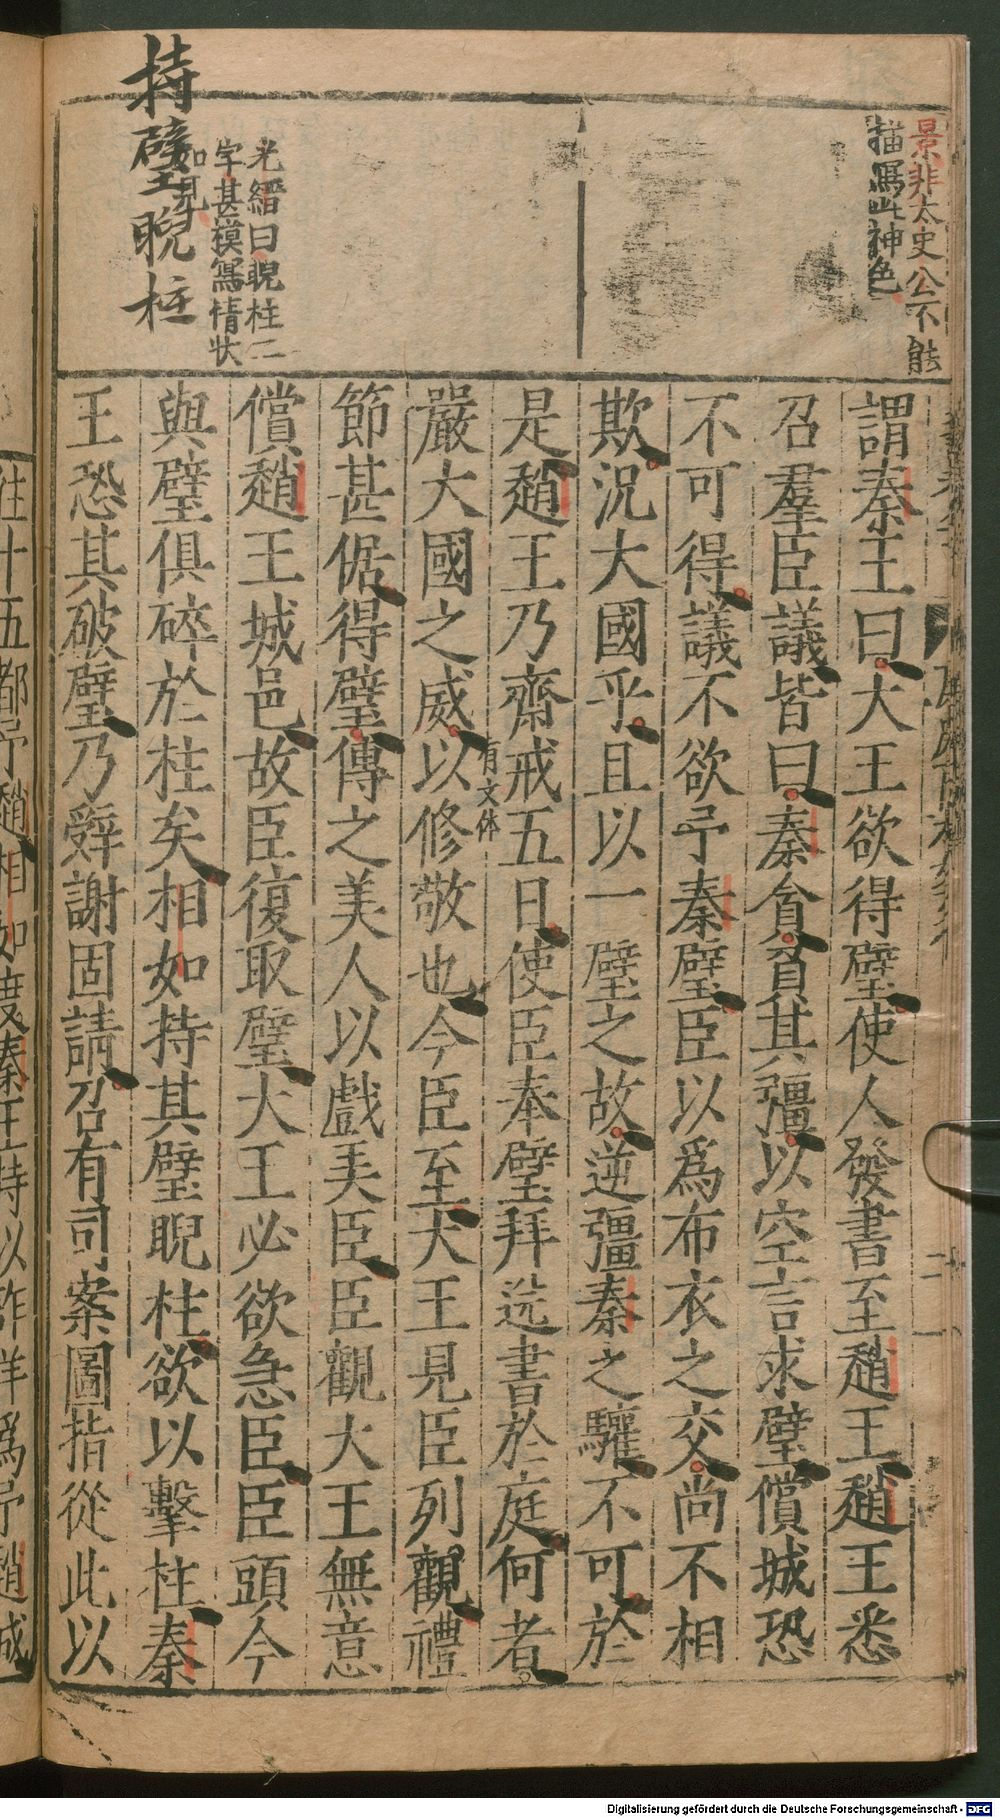 景非太史公不能
描寫此神色
光縉曰睨柱二
字甚摸寫情狀
如見
持璧睨柱
謂秦王曰大王欲得璧使人發書至趙王趙王悉
召羣臣議皆曰秦貪負其彊以空言求璧償城恐
不可得議不欲予秦璧臣以爲布衣之交尚不相
欺況大國乎且以一璧之故逆彊秦之驩不可於
是趙王乃齋戒五日使臣奉璧拜送書於庭何者
有文体
嚴大國之威以修敬也今臣至大王見臣列觀禮
節甚倨得璧傳之美人以戲弄臣臣觀大王無意
償趙王城邑故臣復取璧大王必欲急臣臣頭今
與璧俱碎於柱矣相如持其璧睨柱欲以擊柱秦
王恐其破璧乃辭謝固請召有司案圖指從此以
往十五都予趙相如度秦王特以詐佯爲予趙城
Digitalisierung gefördert durch die Deutsche Forschungsgemeinschaft - DFG